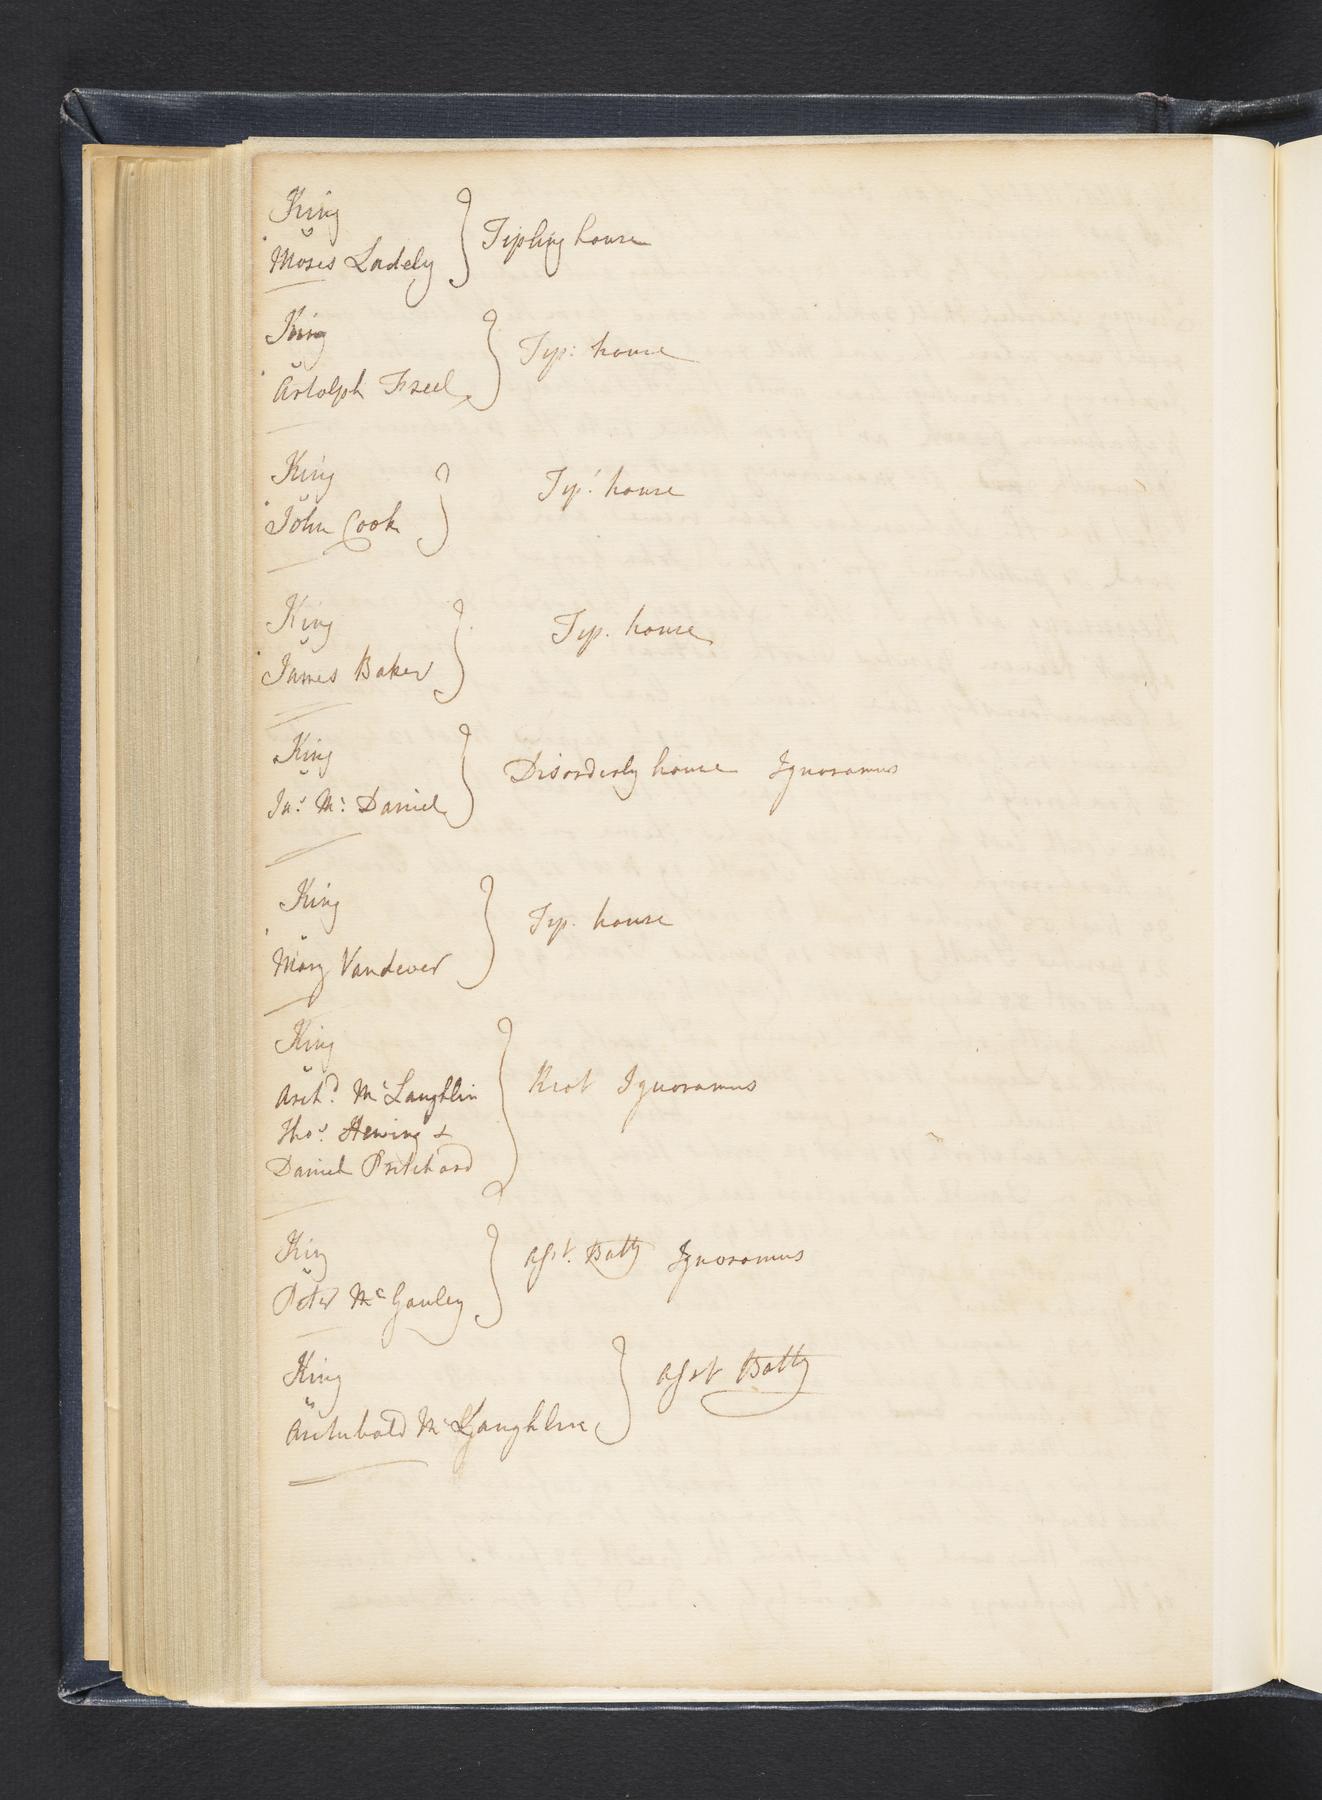 King
v
Moses Ladely } Tipling house
King
v
Artolph Freel } Tip: house
King
v
John Cook } Tip: house
King
v
James Baker } Tip. house
King
v
Jno: Mc: Daniel } Disorderly house Ignoramus
King
v
Mary Vandever } Tip. house
King
v
Archd. Mc Laughlin
Thos. Hewing &
Daniel Pritchard } Riot Ignoramus
King
v
Peter McGauley } Asst. Batty Ignoramus
King
vs
Archibald Mc Laughlin } Asst Batty